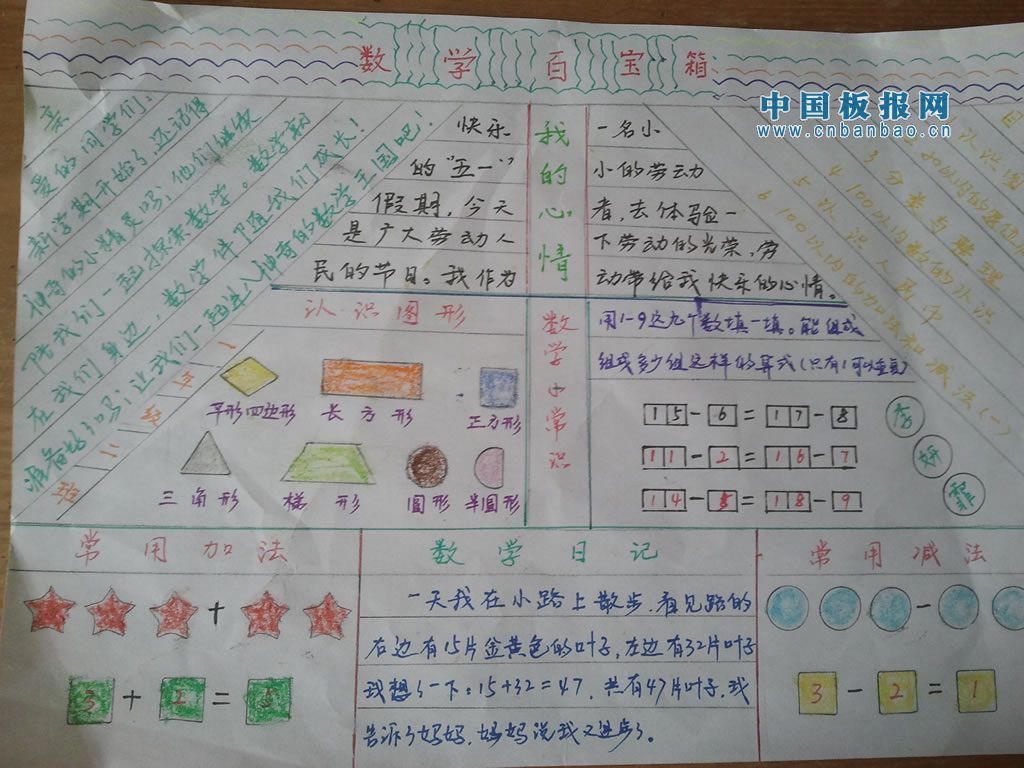 数学百宝箱
中国板报网
www.cnbanbao.cn
亲
爱的同学们:
新学期开始了,还记得
神奇的小精灵吗?他们继续
陪我们一起探索数学。数学就
在我们身边,数学伴随我们成长!
准备好了吗?让我们一起进入神奇的数学王国吧!
一年二班
我的心情
快乐
的“五一”
假期,今天
是广大劳动人
民的节日。我作为
一名小
小的劳动
者,去体验一
下劳动的光荣,劳
动带给我快乐的心情。
3 分类与整理
4 100以内数的认识
5 认识人民币
6 100以内的加法和减法(一)
认识图形
平形四边形 长方形 正方形
三角形 梯形 圆形 半圆形
数学小常识
用1-9这九个数填一填。能组成
组成多少组这样的算式(只有1可以重复)
15-6=17-8
11-2=16-7
14-5=18-9
李
妍
霏
常用加法
+
3+2=5
数学日记
一天我在小路上散步,看见路的
右边有15片金黄色的叶子,左边有32片叶子
我想了一下:15+32=47,共有47片叶子,我
告诉了妈妈,妈妈说我又进步了。
常用减法
-
3-2=1